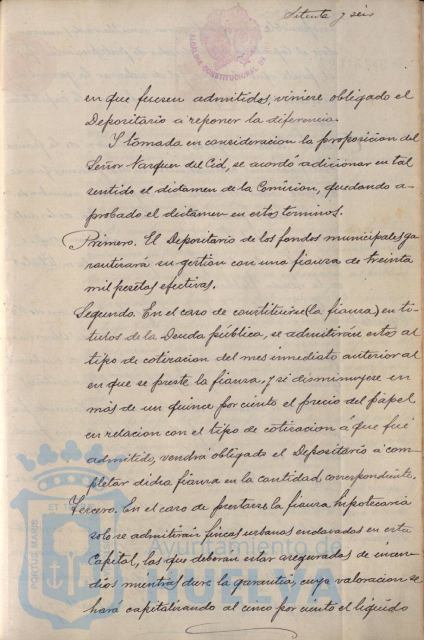 Setenta y seis
ALCALDIA CONSTITUCIONAL DE
en que fuesen admitidos, viniere obligado el
Depositario a reponer la diferencia.
Y tomada en consideracion la proposicion del
Señor Vazquez del Cid, se acordó adicionar en tal
sentido el dictamen de la Comision, quedando a-
probado el dictamen en estos terminos.
Primero. El Depositario de los fondos municipales ga-
rantizará su gestion con una fianza de treinta
mil pesetas efectivas.
Segundo. En el caso de constituirse (la fianza) en tí-
tulos de la Deuda pública, se admitirán estos al
tipo de cotizacion del mes inmediato anterior al
en que se preste la fianza, y si disminuyese en
más de un quince por ciento el precio del papel
en relacion con el tipo de cotizacion á que fué
admitido, vendrá obligado el Depositario á com-
pletar dicha fianza en la cantidad correspondiente.
Tercero. En el caso de prestarse la fianza hipotecaria
solo se admitirán fincas urbanas enclavadas en esta
Capital, las que deberán estar aseguradas de incen-
dios mientras dure la garantía, cuya valoracion se
hará capitalizando al cinco por ciento el líquido
PORTUS MARIS
ET TE
Ayuntamiento de
HUELVA